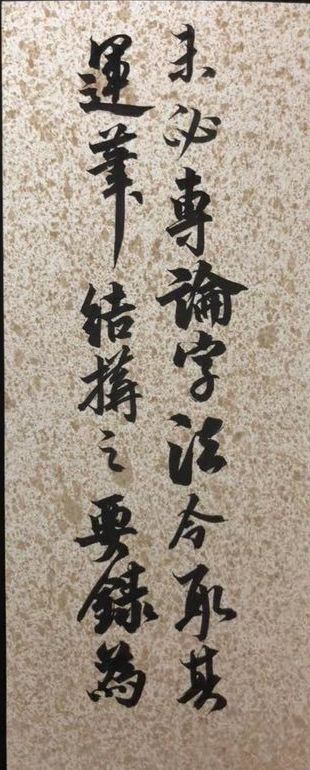 未必專論字法今取其
運筆結構之要錄為